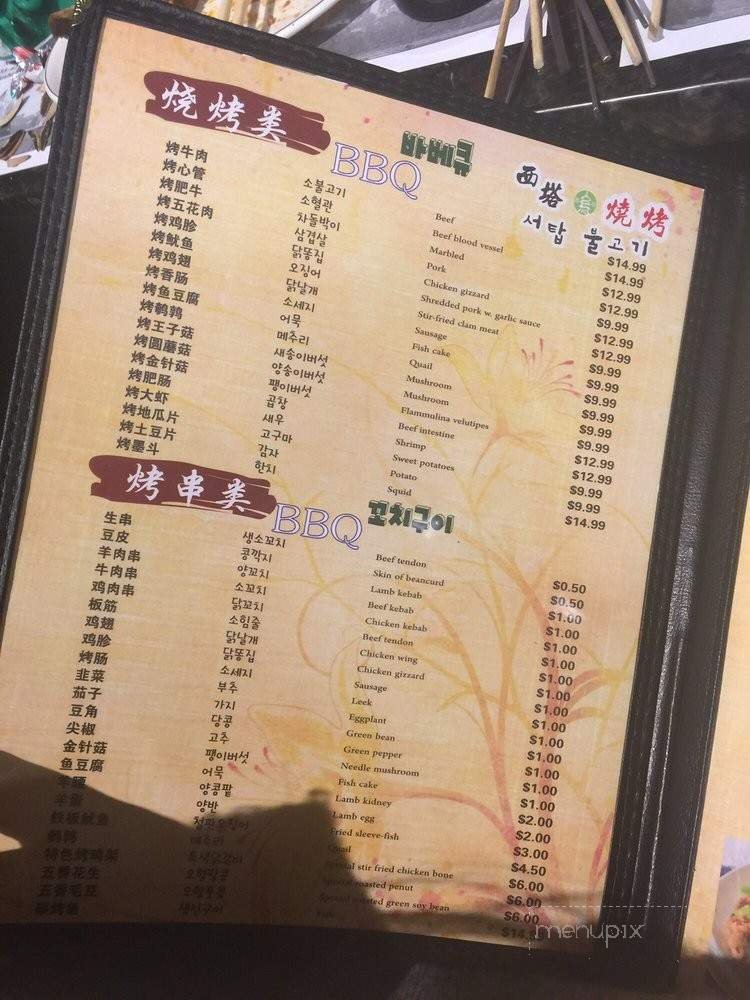 烧烤类 BBQ 바베큐
西塔 烧烤
서탑 불고기
烤牛肉 소불고기 Beef $14.99
烤心管 소혈관 Beef blood vessel $14.99
烤肥牛 차돌박이 Marbled $12.99
烤五花肉 삼겹살 Pork $12.99
烤鸡胗 닭똥집 Chicken gizzard $9.99
烤鱿鱼 오징어 Shredded pork w. garlic sauce $12.99
烤鸡翅 닭날개 Stir-fried clam meat $12.99
烤香肠 소세지 Sausage $9.99
烤鱼豆腐 어묵 Fish cake $9.99
烤鹌鹑 메추리 Quail $9.99
烤王子菇 새송이버섯 Mushroom $9.99
烤圆蘑菇 양송이버섯 Mushroom $9.99
烤金针菇 팽이버섯 Flammulina velutipes $9.99
烤肥肠 곱창 Beef intestine $12.99
烤大虾 새우 Shrimp $12.99
烤地瓜片 고구마 Sweet potatoes $9.99
烤土豆片 감자 Potato $9.99
烤墨斗 한치 Squid $14.99
烤串类 BBQ 꼬치구이
生串 생소꼬치 Beef tendon $0.50
豆皮 콩깍지 Skin of beancurd $0.50
羊肉串 양꼬치 Lamb kebab $1.00
牛肉串 소꼬치 Beef kebab $1.00
鸡肉串 닭꼬치 Chicken kebab $1.00
板筋 소힘줄 Beef tendon $1.00
鸡翅 닭날개 Chicken wing $1.00
鸡胗 닭똥집 Chicken gizzard $1.00
烤肠 소세지 Sausage $1.00
韭菜 부추 Leek $1.00
茄子 가지 Eggplant $1.00
豆角 당콩 Green bean $1.00
尖椒 고추 Green pepper $1.00
金针菇 팽이버섯 Needle mushroom $1.00
鱼豆腐 어묵 Fish cake $1.00
羊腰 양콩팥 Lamb kidney $2.00
羊蛋 양반 Lamb egg $2.00
铁板鱿鱼 철판오징어 Fried sleeve-fish $3.00
鹌鹑 메추리 Quail $4.50
特色烤鸡架 특색닭갈비 Special stir fried chicken bone $6.00
五香花生 오향땅콩 Special roasted penut $6.00
五香毛豆 오향풋콩 Special roasted green soy bean $6.00
생선구이
menupix